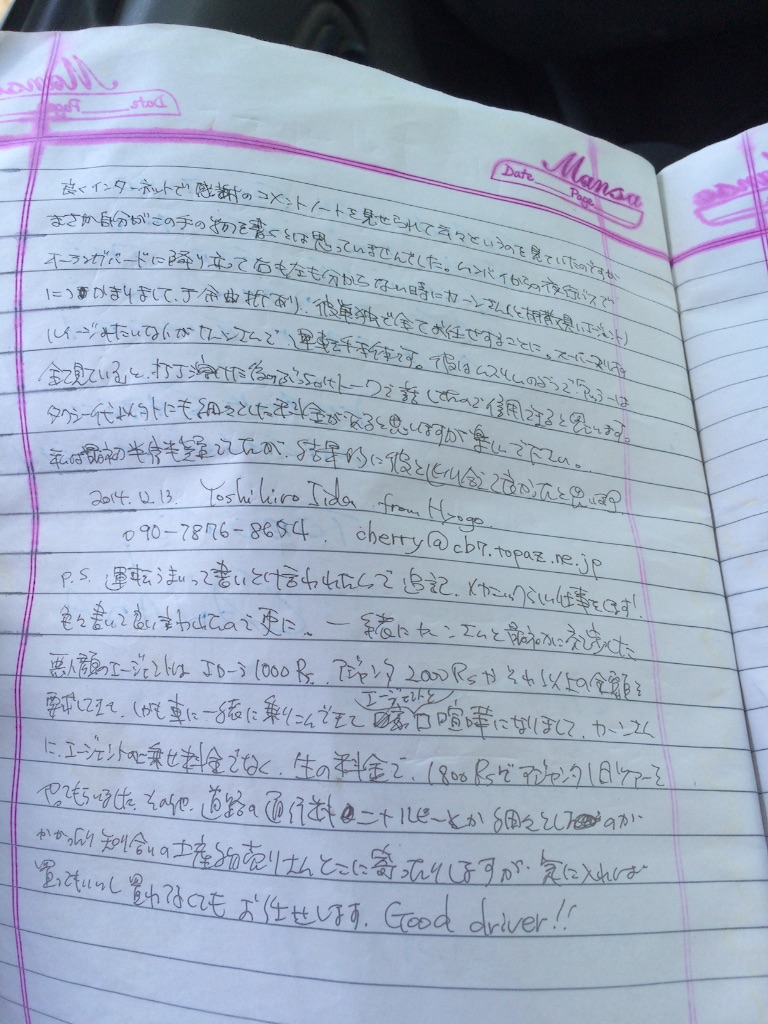 Mansa
Date Page
良くインターネットで感謝のコメントノートを見せられて云々というのを見ていたのですが
まさか自分がこの手の物を書くとは思っていませんでした。ムンバイからの夜行バスで
オーランガバードに降り立って右も左も分からない時にカーンさん(と相棒の悪いエージェント)
につかまりまして、予余曲折あり、彼単独で全てお任せすることに。
カーンさんで運転手手伝です。彼はムスリムのようで
全て見ている。と、打ち解けた後のぶっちゃけトークで話してたので信用できると思います。
タクシー代以外にも細々とした料金がかかると思いますが楽しんで下さい。
私は最初半信半疑でしたが、結果的に彼と出会えて良かったと思います
2014.12.13. Yoshihiro Iida from Hyogo
090-7876-8654. cherry@cb7.topaz.ne.jp
P.S. 運転うまいって書いとけ言われたんで追記、メカニックらしい仕事をします!
色々書いて良い言われたので更に。一緒にカーンさんと最初に交渉した
悪人顔のエージェントは エローラ1000Rs, アジャンタ2000Rsかそれ以上の金額を
要求してきて、しかも車に一緒に乗りこんできて エージェントと口喧嘩になりまして、カーンさん
に、エージェントの上乗せ料金でなく、生の料金で、1800Rsでアジャンタ1日ツアーを
やってもらいました。その他、道路の通行料 二十ルピーとか細々としたのが
かかったり知り合いの土産物売りさんとこに寄ったりしますが、気に入れば
買ってもいいし買わなくてもお任せします. Good driver!!